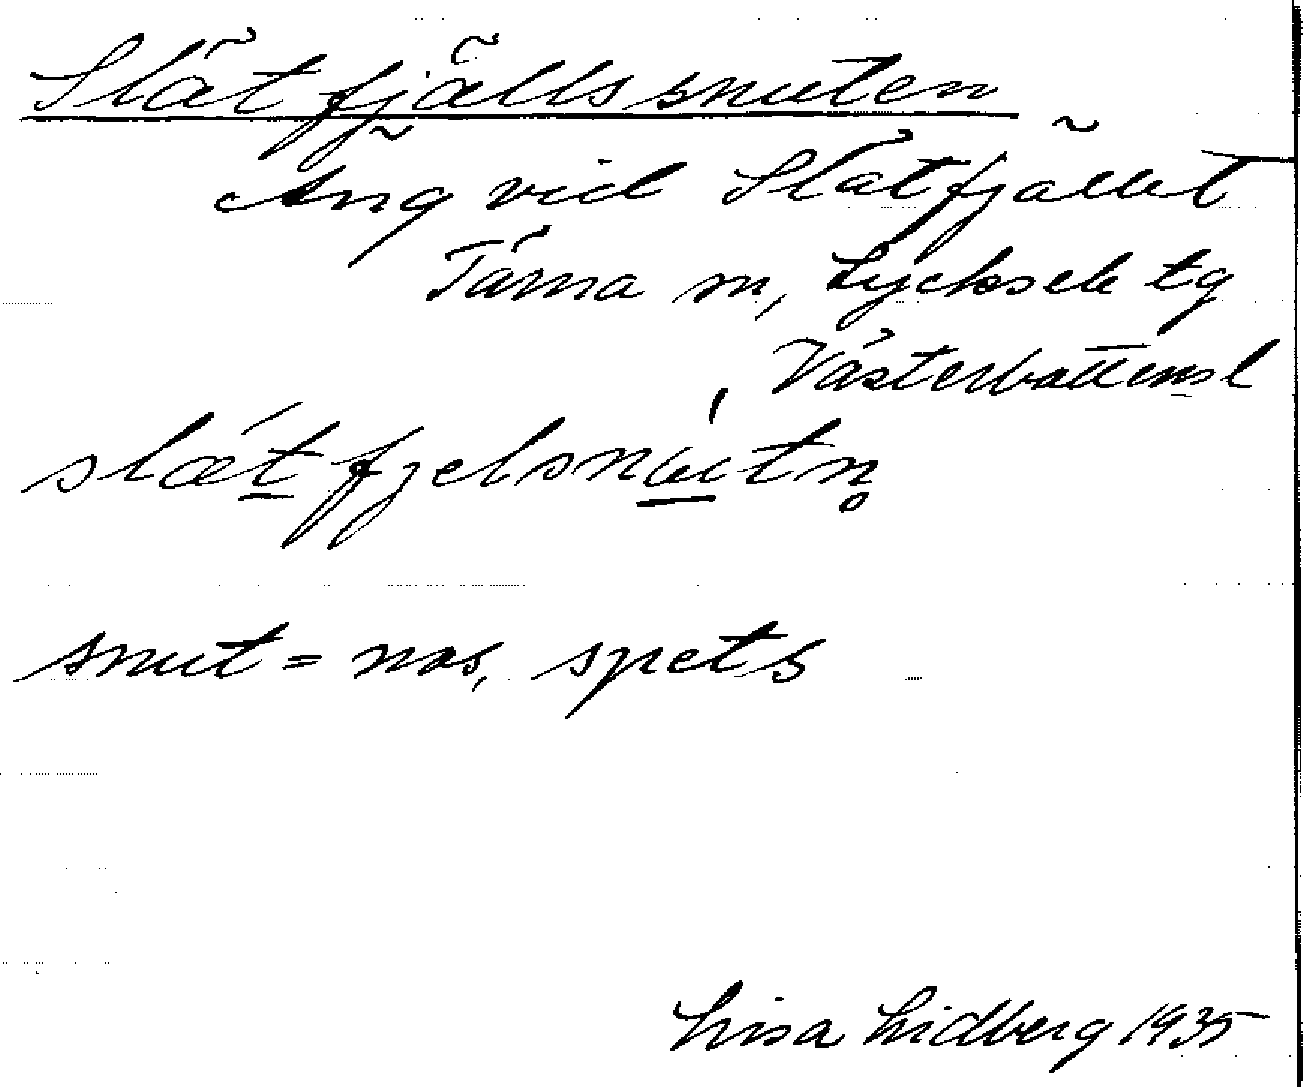 Slätfjällssnuten
Äng vid Slätfjället
Tärna sn, Lycksele tg
Västerbottens l
slætfjelsnutn̥
snut = nos, spets
Lisa Lidberg 1935